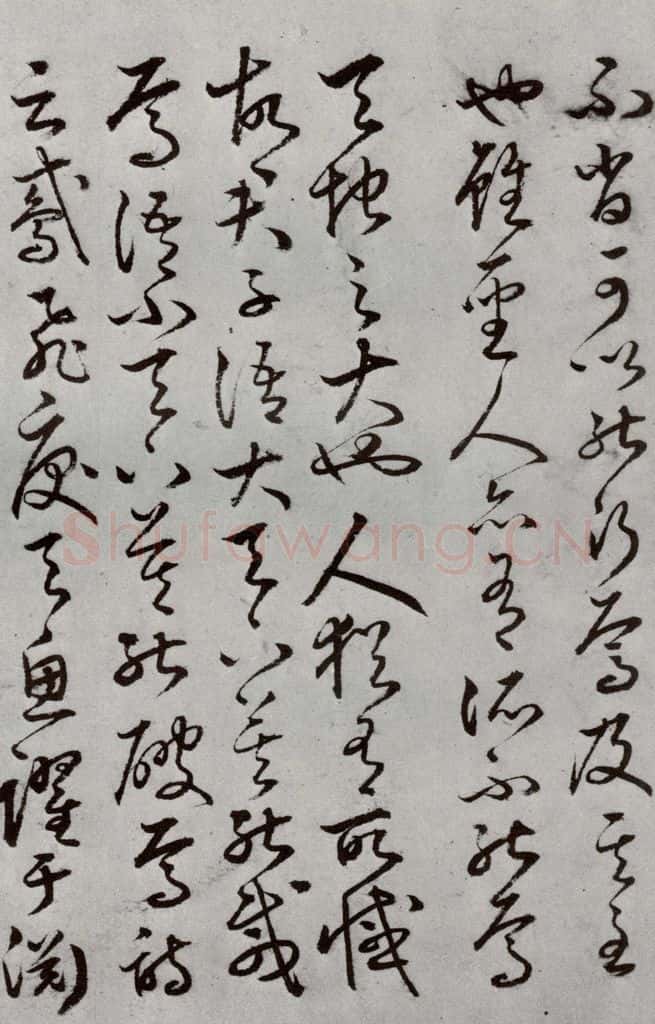 不肖可以能行焉及其至
也雖聖人亦有所不能焉
天地之大也人猶有所憾
故君子語大天下莫能載
焉語小天下莫能破焉詩
云鳶飛戾天魚躍于淵
Shufawang.CN